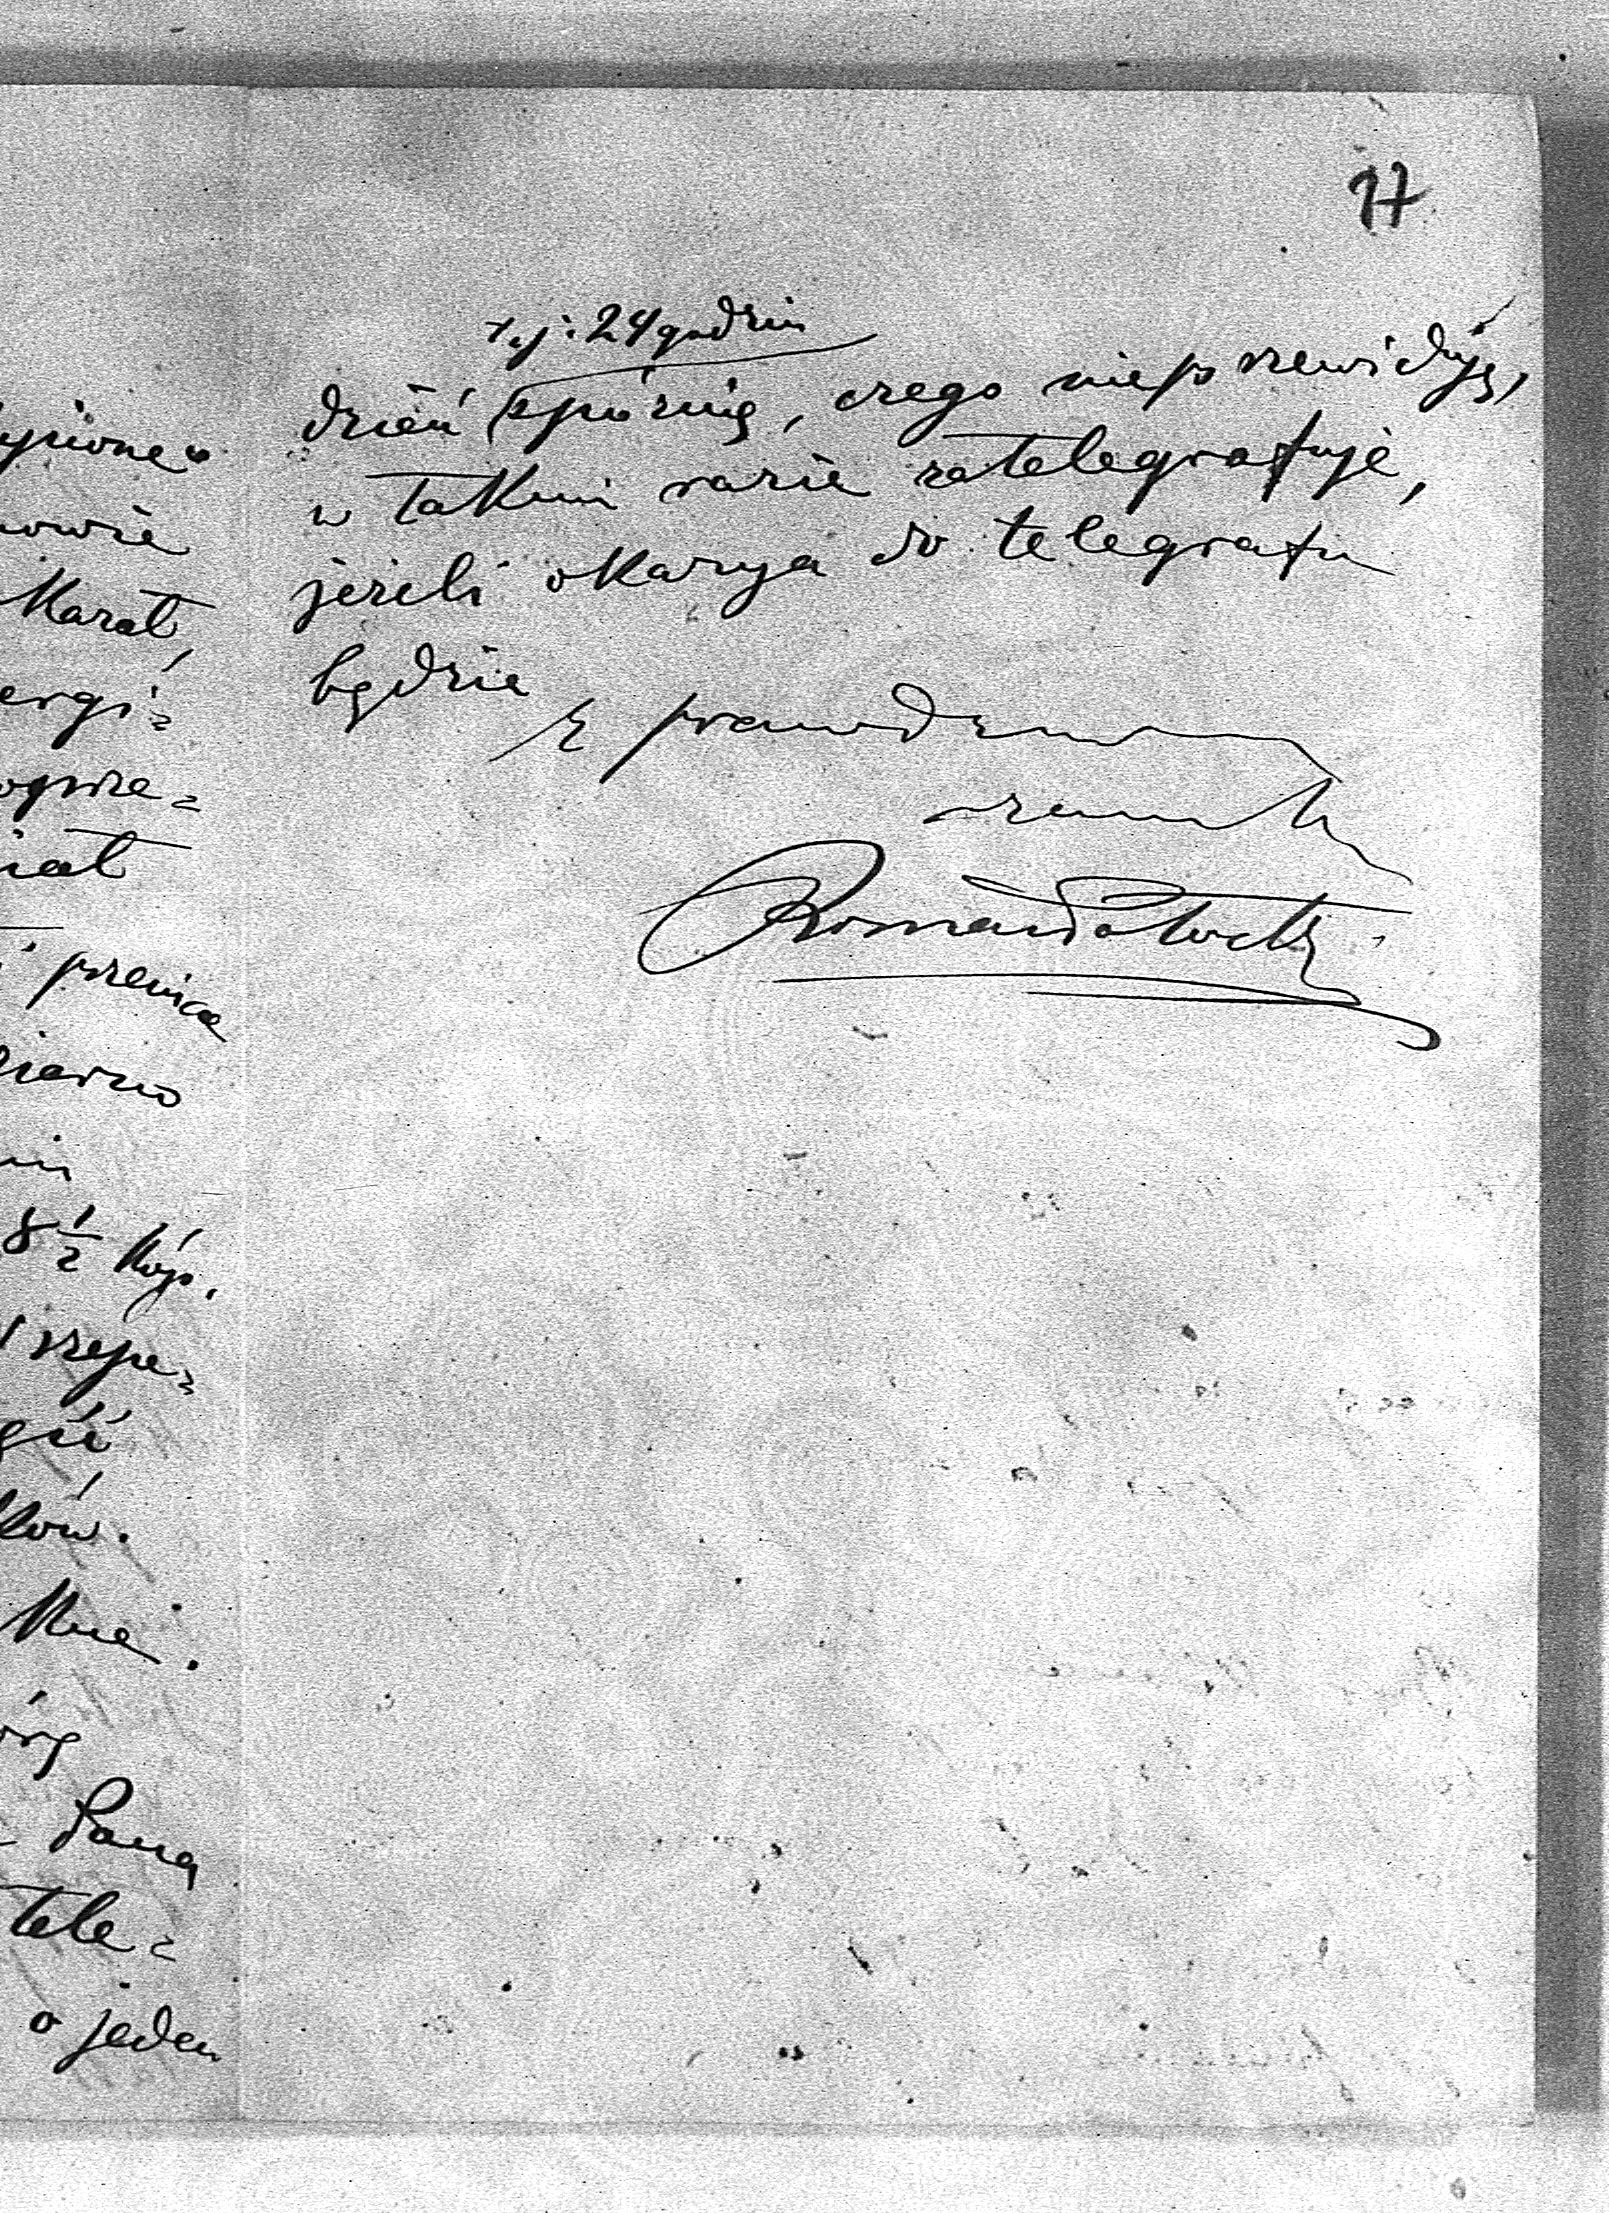 17
t.j: 24 godzin
dzień spóźnię, czego nieprzewiduję,
w takim razie zatelegrafuję,
jeżeli okazya do telegrafu
będzie
Z prawdziwym
szacunk
Roman Potocki
nowie
Karat,
ergi=
i pszenica
ziarno
8 1/2 kóp.
gii
ków.
Pana
tele=
o jeden